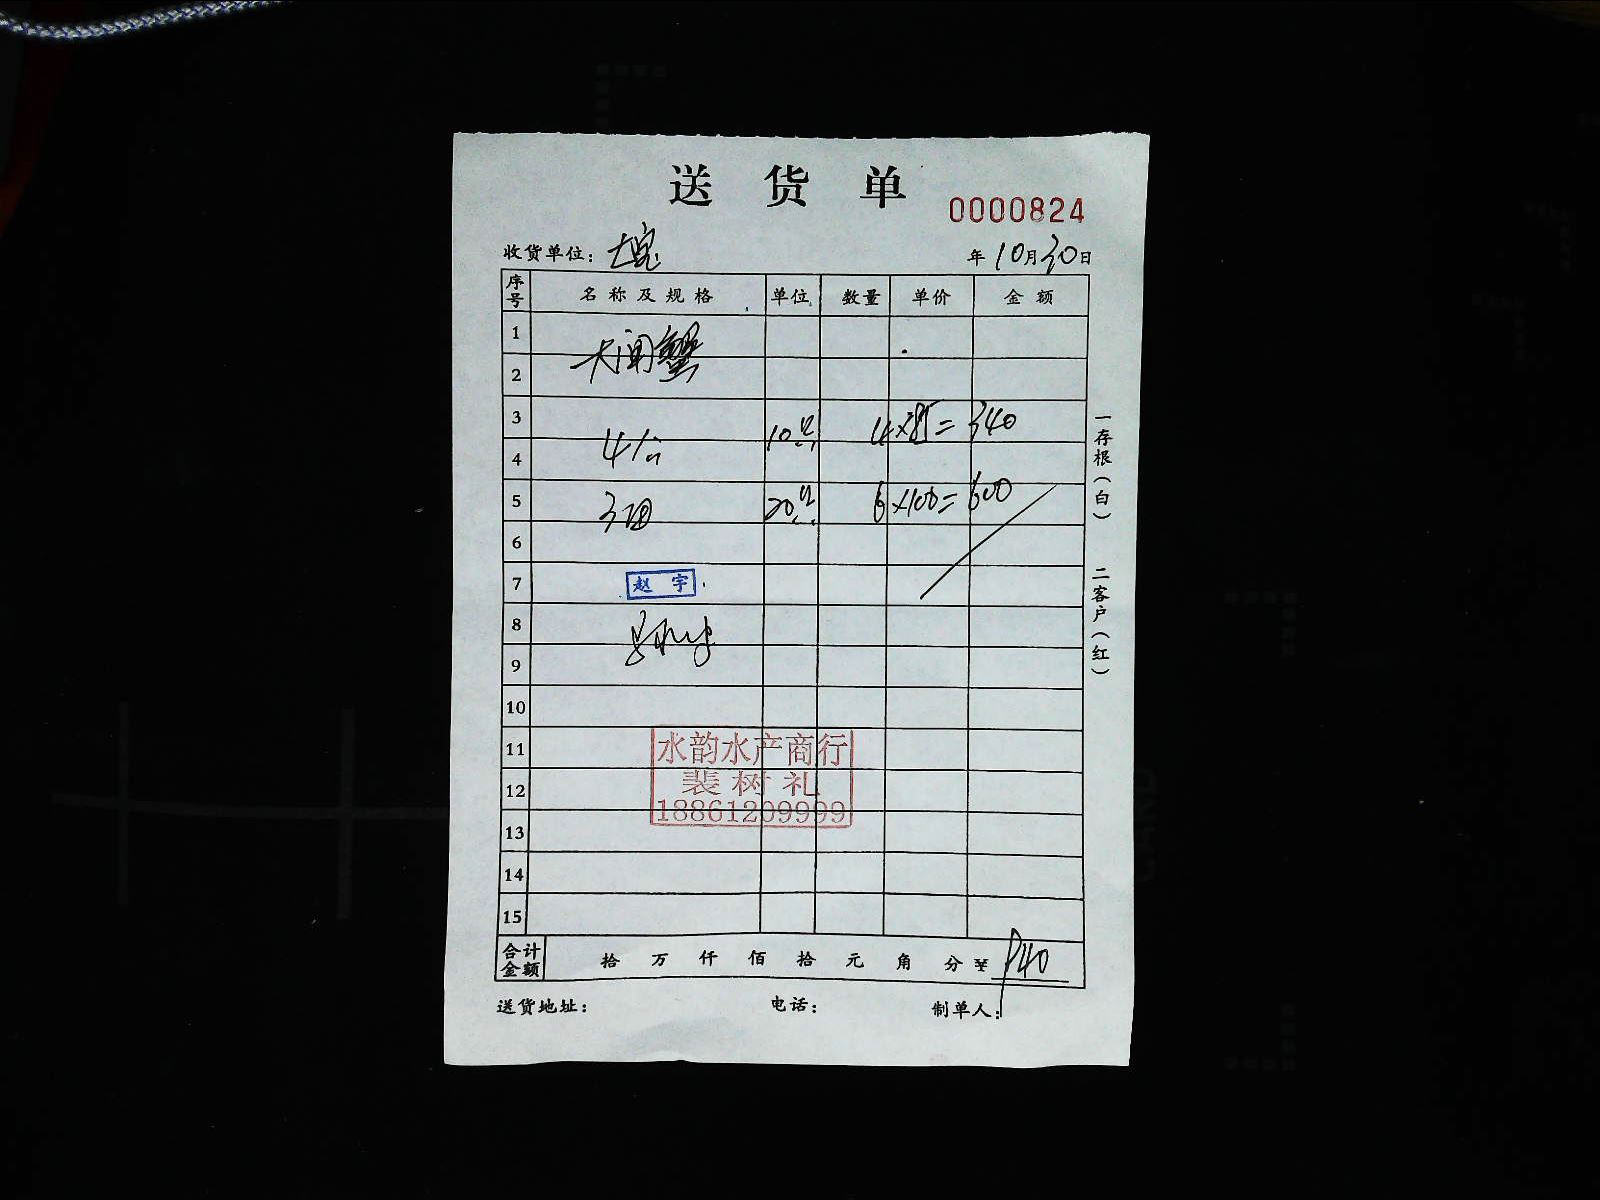 送货单
0000824
收货单位：
年10月30日
序号 名称及规格 单位 数量 单价 金额
1
大闸蟹
2
3
4 10 4×85=340
4
5 20 6×100=600
3
6
7 赵宇
8
9
10
11
水韵水产商行
12
裴树礼
18861209999
13
14
15
合计金额 拾 万 仟 佰 拾 元 角 分 ¥ 940
送货地址： 电话： 制单人：
一存根（白）
二客户（红）